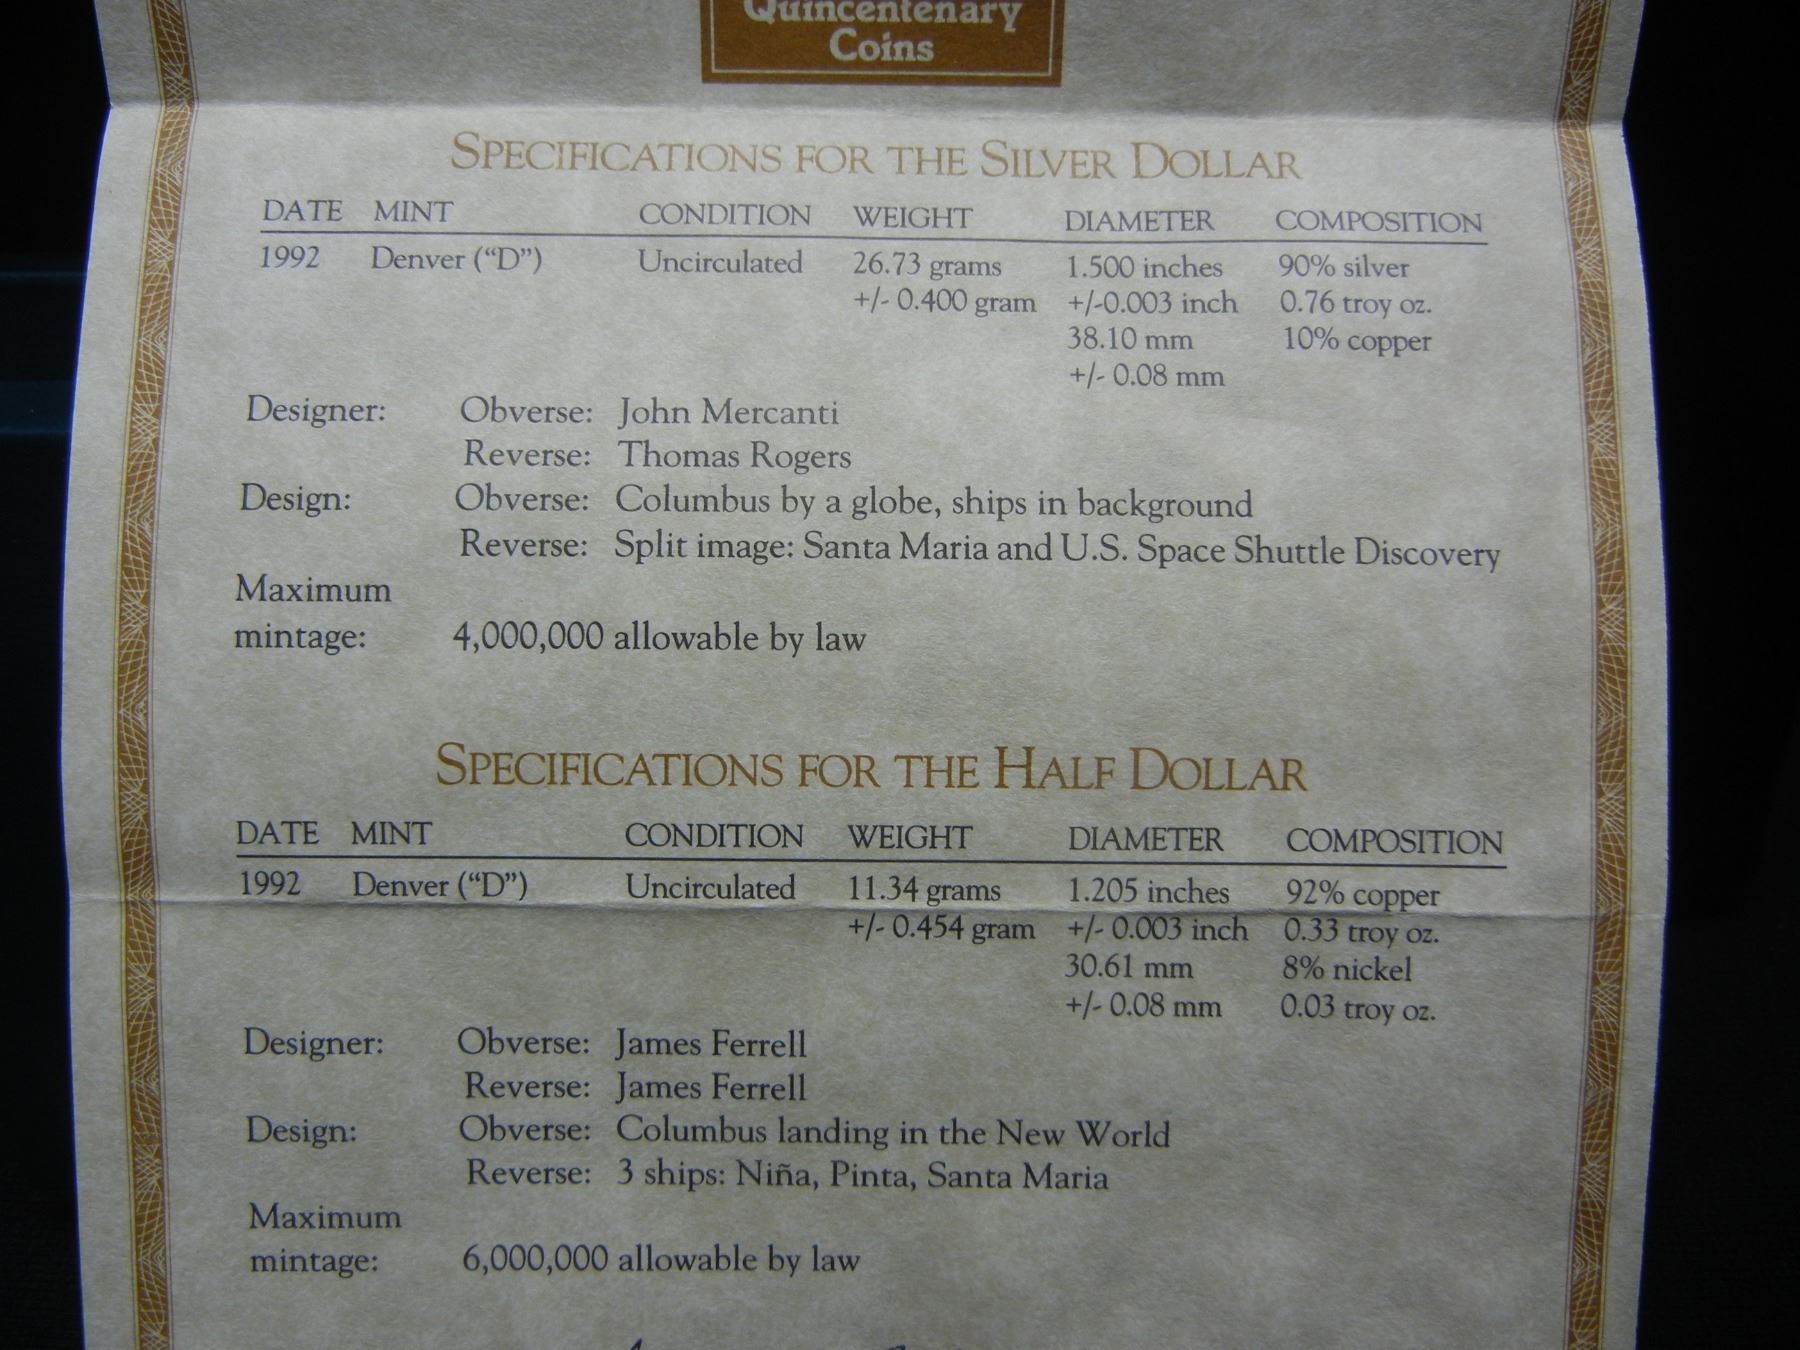 Quincentenary
Coins
SPECIFICATIONS FOR THE SILVER DOLLAR
DATE MINT CONDITION WEIGHT DIAMETER COMPOSITION
1992 Denver (“D”) Uncirculated 26.73 grams 1.500 inches 90% silver
+/- 0.400 gram +/-0.003 inch 0.76 troy oz.
38.10 mm 10% copper
+/- 0.08 mm
Designer: Obverse: John Mercanti
Reverse: Thomas Rogers
Design: Obverse: Columbus by a globe, ships in background
Reverse: Split image: Santa Maria and U.S. Space Shuttle Discovery
Maximum
mintage: 4,000,000 allowable by law
SPECIFICATIONS FOR THE HALF DOLLAR
DATE MINT CONDITION WEIGHT DIAMETER COMPOSITION
1992 Denver (“D”) Uncirculated 11.34 grams 1.205 inches 92% copper
+/- 0.454 gram +/- 0.003 inch 0.33 troy oz.
30.61 mm 8% nickel
+/- 0.08 mm 0.03 troy oz.
Designer: Obverse: James Ferrell
Reverse: James Ferrell
Design: Obverse: Columbus landing in the New World
Reverse: 3 ships: Niña, Pinta, Santa Maria
Maximum
mintage: 6,000,000 allowable by law